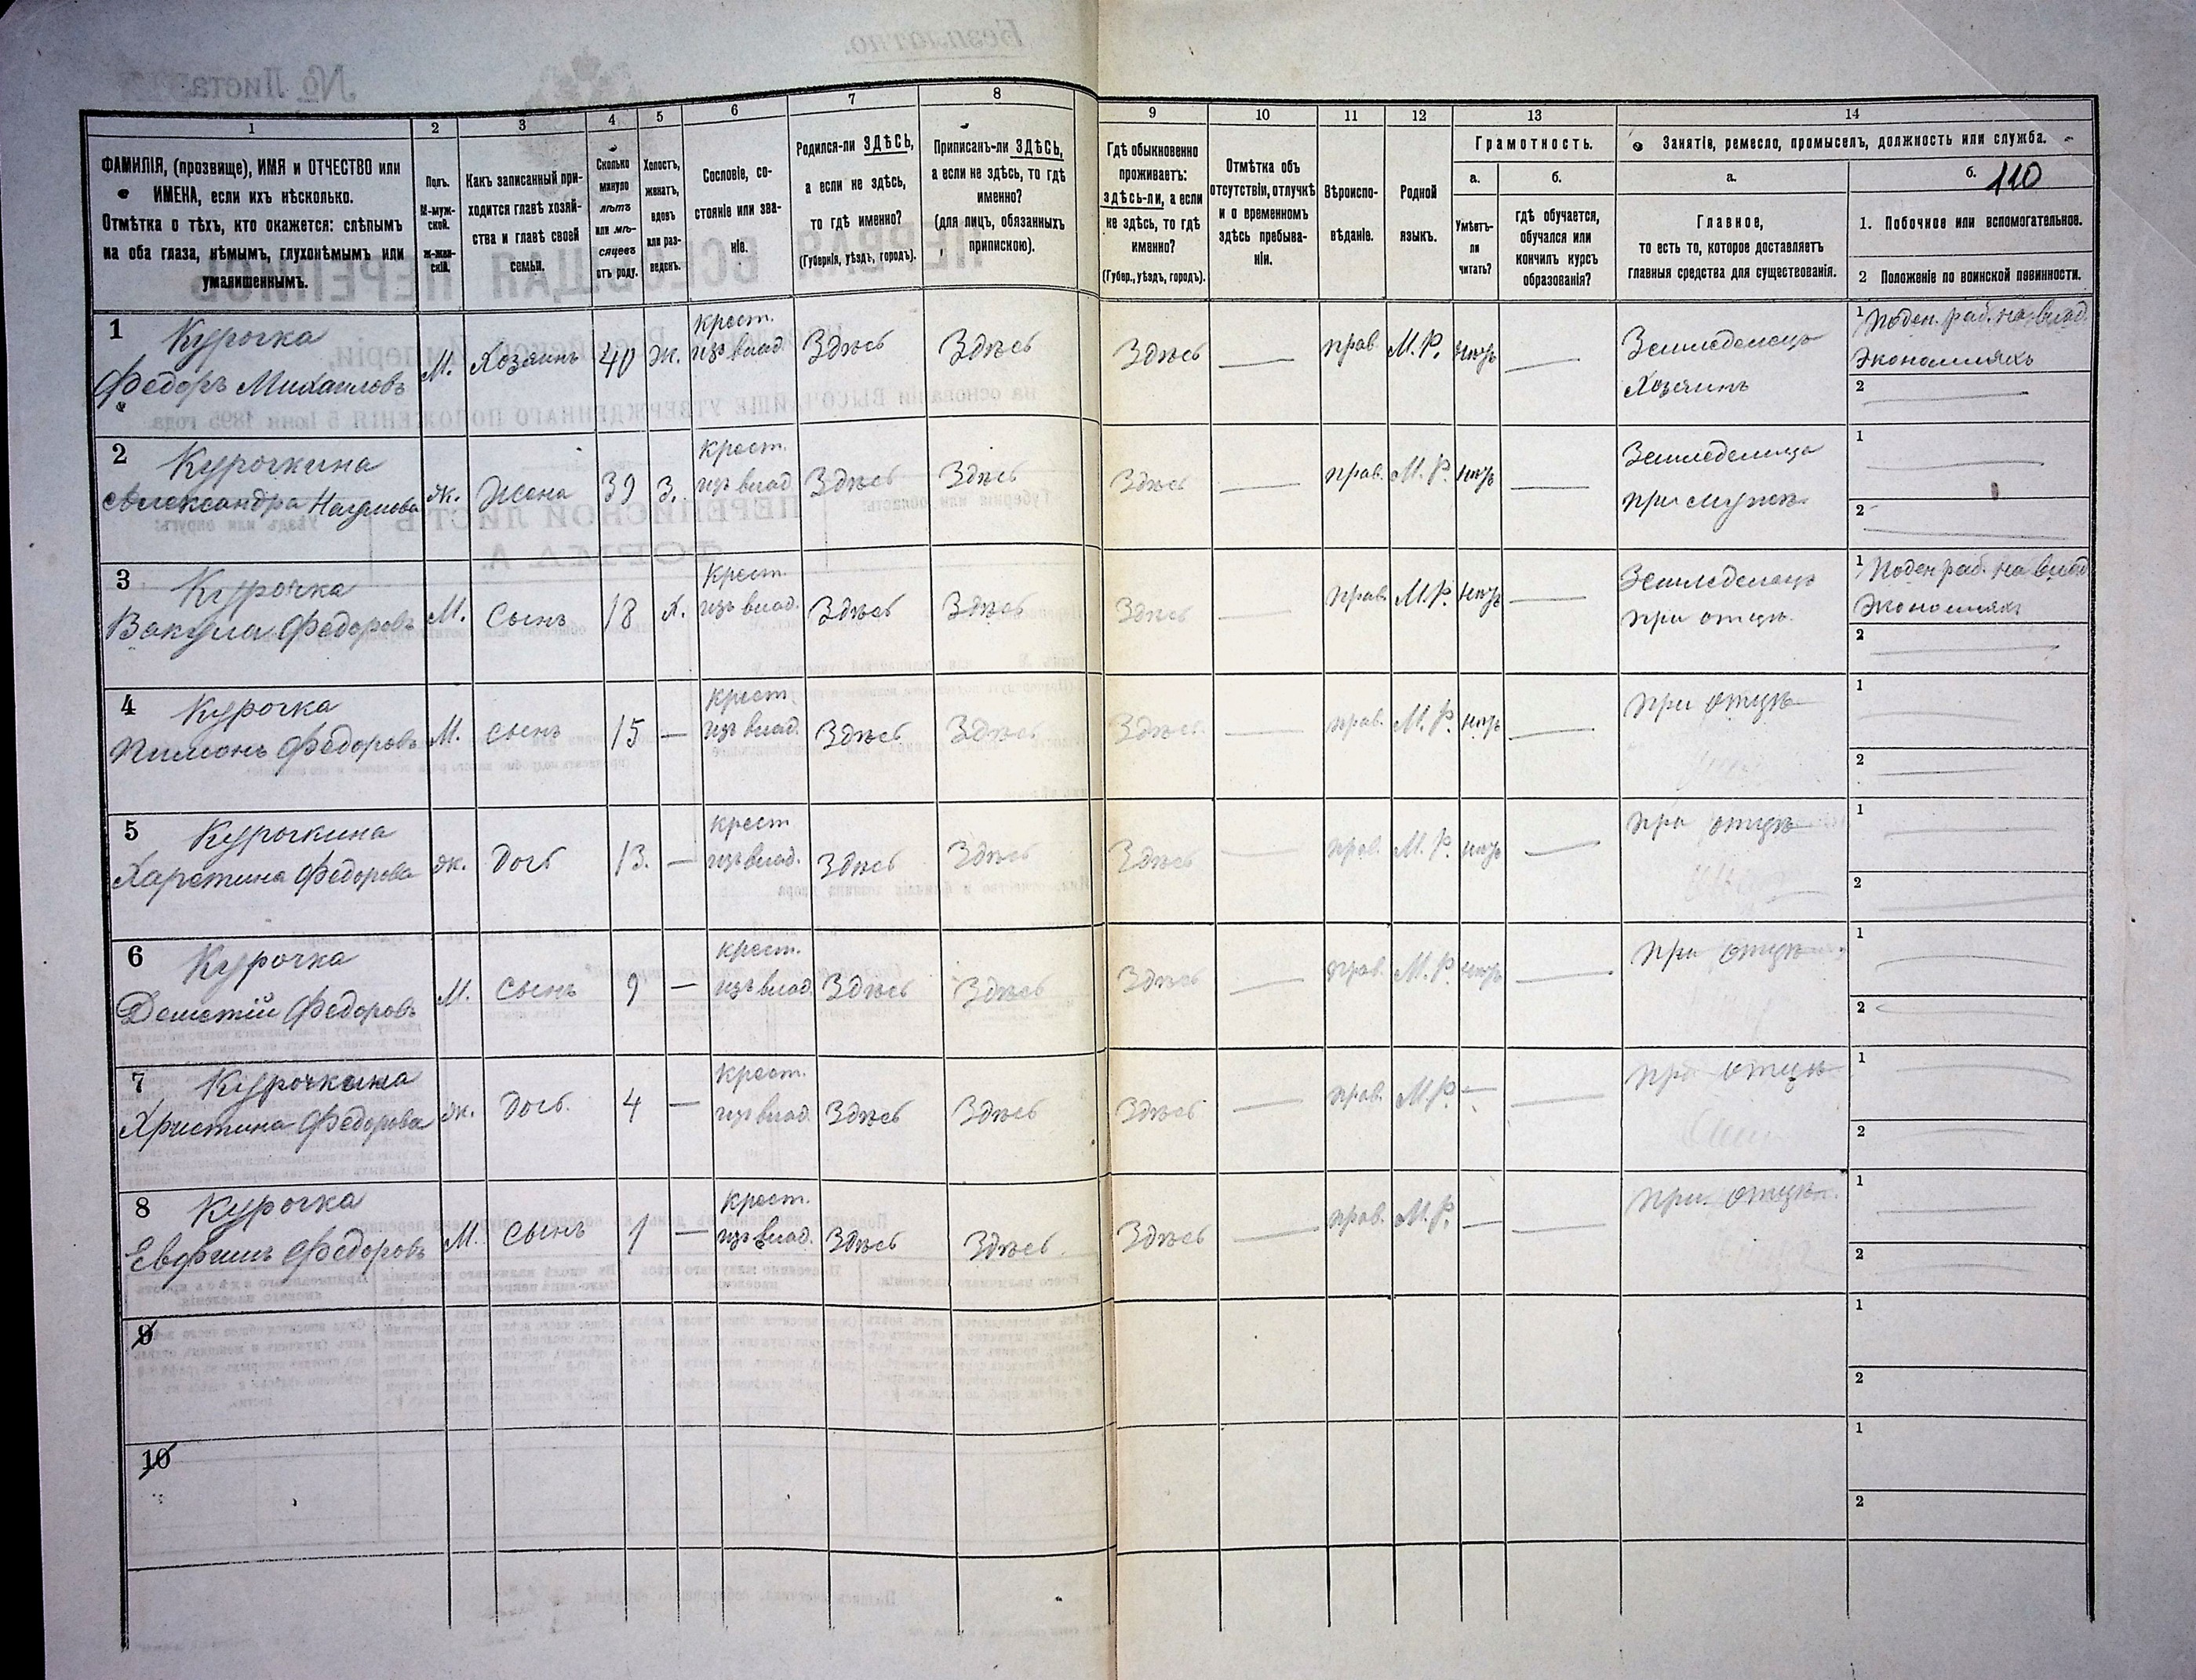 1 2 3 4 5 6 7 8 9 10 11 12 13 14
ФАМИЛІЯ, (прозвище), ИМЯ и ОТЧЕСТВО или
ИМЕНА, если ихъ нѣсколько.
Отмѣтка о тѣхъ, кто окажется: слѣпымъ
на оба глаза, нѣмымъ, глухонѣмымъ или
умалишеннымъ.
Полъ.
М-муж-
ской.
ж-жен-
скій.
Какъ записанный при-
ходится главѣ хозяй-
ства и главѣ своей
семьи.
Сколько
минуло
лѣтъ
или мѣ-
сяцевъ
отъ роду.
Холостъ,
женатъ,
вдовъ
или раз-
веденъ.
Сословіе, со-
стояніе или зва-
ніе.
Родился-ли ЗДѢСЬ,
а если не здѣсь,
то гдѣ именно?
(Губернія, уѣздъ, городъ).
Приписанъ-ли ЗДѢСЬ,
а если не здѣсь, то гдѣ
именно?
(для лицъ, обязанныхъ
припискою).
Гдѣ обыкновенно
проживаетъ:
здѣсь-ли, а если
не здѣсь, то гдѣ
именно?
(Губер., уѣздъ, городъ).
Отмѣтка объ
отсутствіи, отлучкѣ
и о временномъ
здѣсь пребыва-
ніи.
Вѣроиспо-
вѣданіе.
Родной
языкъ.
Грамотность.
а.
Умѣетъ-
ли
читать?
б.
гдѣ обучается,
обучался или
кончилъ курсъ
образованія?
Занятіе, ремесло, промыселъ, должность или служба.
а.
Главное,
то есть то, которое доставляетъ
главныя средства для существованія.
б. 110
1. Побочное или вспомогательное.
2 Положеніе по воинской повинности.
1 Курочка
Федоръ Михаиловъ
М. Хозяинъ 40 Ж. крест.
изъ влад. Здѣсь Здѣсь Здѣсь — прав. М.Р. нѣтъ —
Земледелецъ
Хозяинъ
1 Поден. раб. на влад.
Экономіяхъ
2 —
2 Курочкина
Александра Наумова
ж. Жена 39 З. крест.
изъ влад Здѣсь Здѣсь Здѣсь — прав. М.Р. нѣтъ —
Земледелица
при мужѣ.
1 —
2 —
3 Курочка
Вакула Федоровъ
М. Сынъ 18 Х. крест.
изъ влад. Здѣсь Здѣсь Здѣсь — прав. М.Р. нѣтъ —
Земледелецъ
при отцѣ.
1 Поден раб. на влад
Экономіяхъ
2 —
4 Курочка
Пимонъ Федоровъ
М. сынъ 15 — крест
изъ влад. Здѣсь Здѣсь Здѣсь — прав. М.Р. нѣтъ —
при отцѣ
1 —
2 —
5 Курочкина
Харетина Федорова
ж. дочь 13. — крест
изъ влад. Здѣсь Здѣсь Здѣсь — прав. М.Р. нѣтъ —
при отцѣ
1 —
2 —
6 Курочка
Федоровъ
М. сынъ 9 — крест.
изъ влад. Здѣсь Здѣсь Здѣсь — прав. М.Р. нѣтъ —
при отцѣ
1 —
2 —
7 Курочкина
Христина Федорова
ж. дочь. 4 — крест.
изъ влад. Здѣсь Здѣсь Здѣсь — прав. М.Р. — —
при отцѣ
1 —
2 —
8 Курочка
Евфимъ Федоровъ
М. сынъ 1 — крест.
изъ влад. Здѣсь Здѣсь Здѣсь — прав. М.Р. — —
при отцѣ.
1 —
2
9
1
2
10
1
2